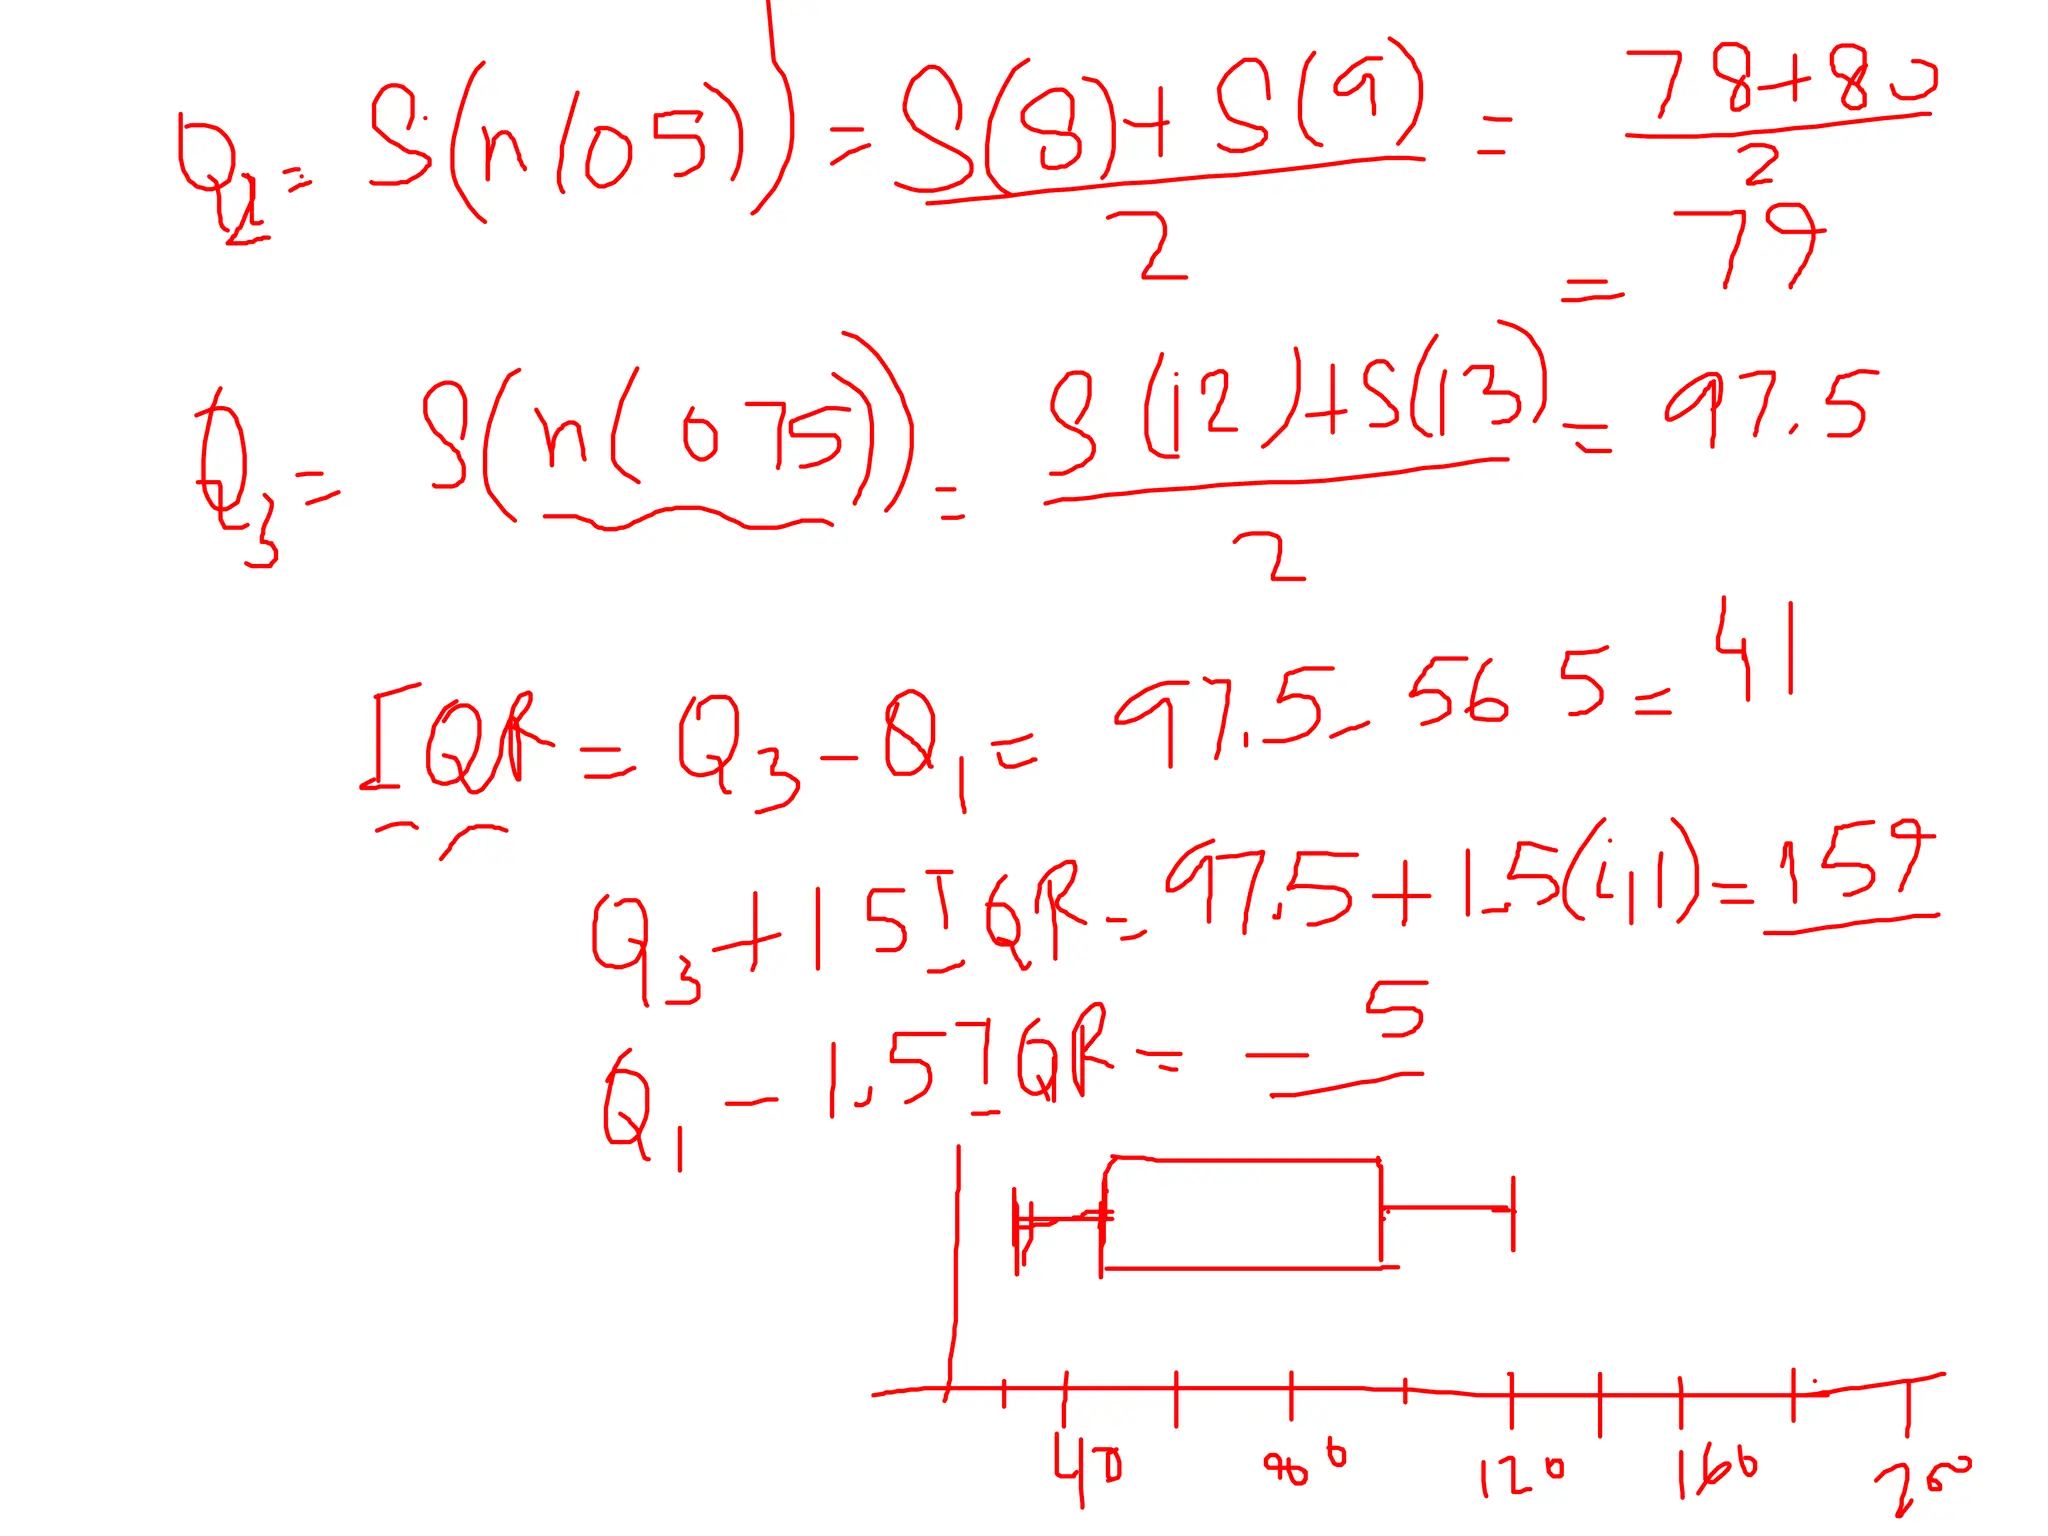 Q₂ = S(n(05)) = (S(8)+S(9))/2 = (78+80)/2
= 79
Q₃ = S(n(075)) = (S(12)+S(13))/2 = 97.5
IQR = Q₃ - Q₁ = 97.5 - 56 5 = 41
Q₃ + 1 5 IQR = 97.5 + 1.5(41) = 159
Q₁ - 1.5 IQR = - 5
40 80 120 160 200